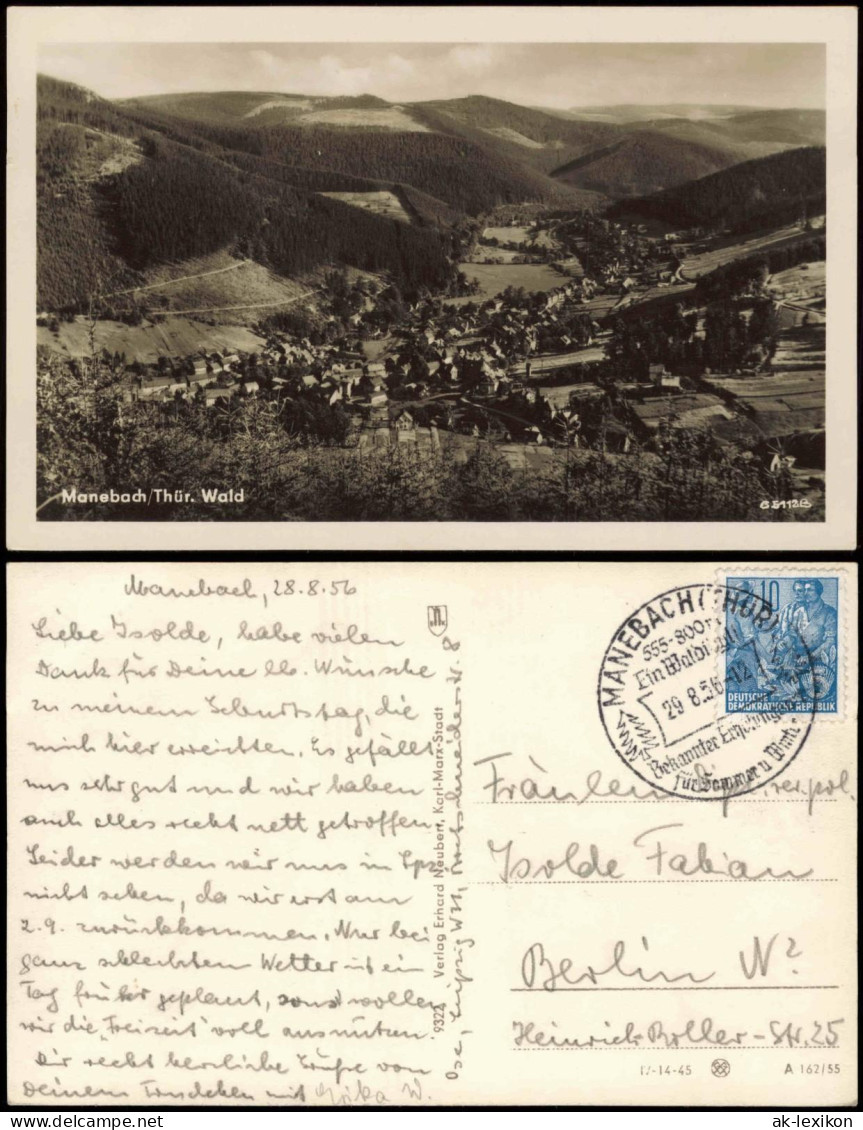 Manebach/Thür. Wald
G 5112 B
Manebach, 28.8.56
Liebe Isolde, habe vielen
Dank für Deine lb. Wünsche
zu meinem Geburtstag, die
mich hier erreichten. Es gefällt
uns sehr gut und wir haben
auch alles recht nett getroffen.
Leider werden wir uns in Lpz.
nicht sehen, da wir erst am
2.9. zurückkommen. Nur bei
ganz schlechtem Wetter ist ein
Tag früher geplant, sonst wollen
wir die "Freizeit" voll ausnützen.
Dir recht herzliche Grüße von
Deinem mit W.
Leipzig W31,
9322 Verlag Erhard Neubert, Karl-Marx-Stadt
MANEBACH (THÜR)
555-800m
Ein Waldi
29.8.56-12
Bekannter Erholungs
für Sommer u Wint.
10
DEUTSCHE
DEMOKRATISCHE REPUBLIK
Fräulein
Isolde Fabian
Berlin N
Heinrich Roller-Str. 25
IV-14-45 A 162/55
ak-lexikon